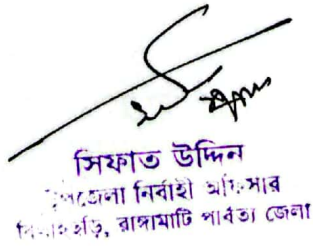 সিফাত উদ্দিন
উপজেলা নির্বাহী অফিসার
রাঙ্গামাটি পার্বত্য জেলা